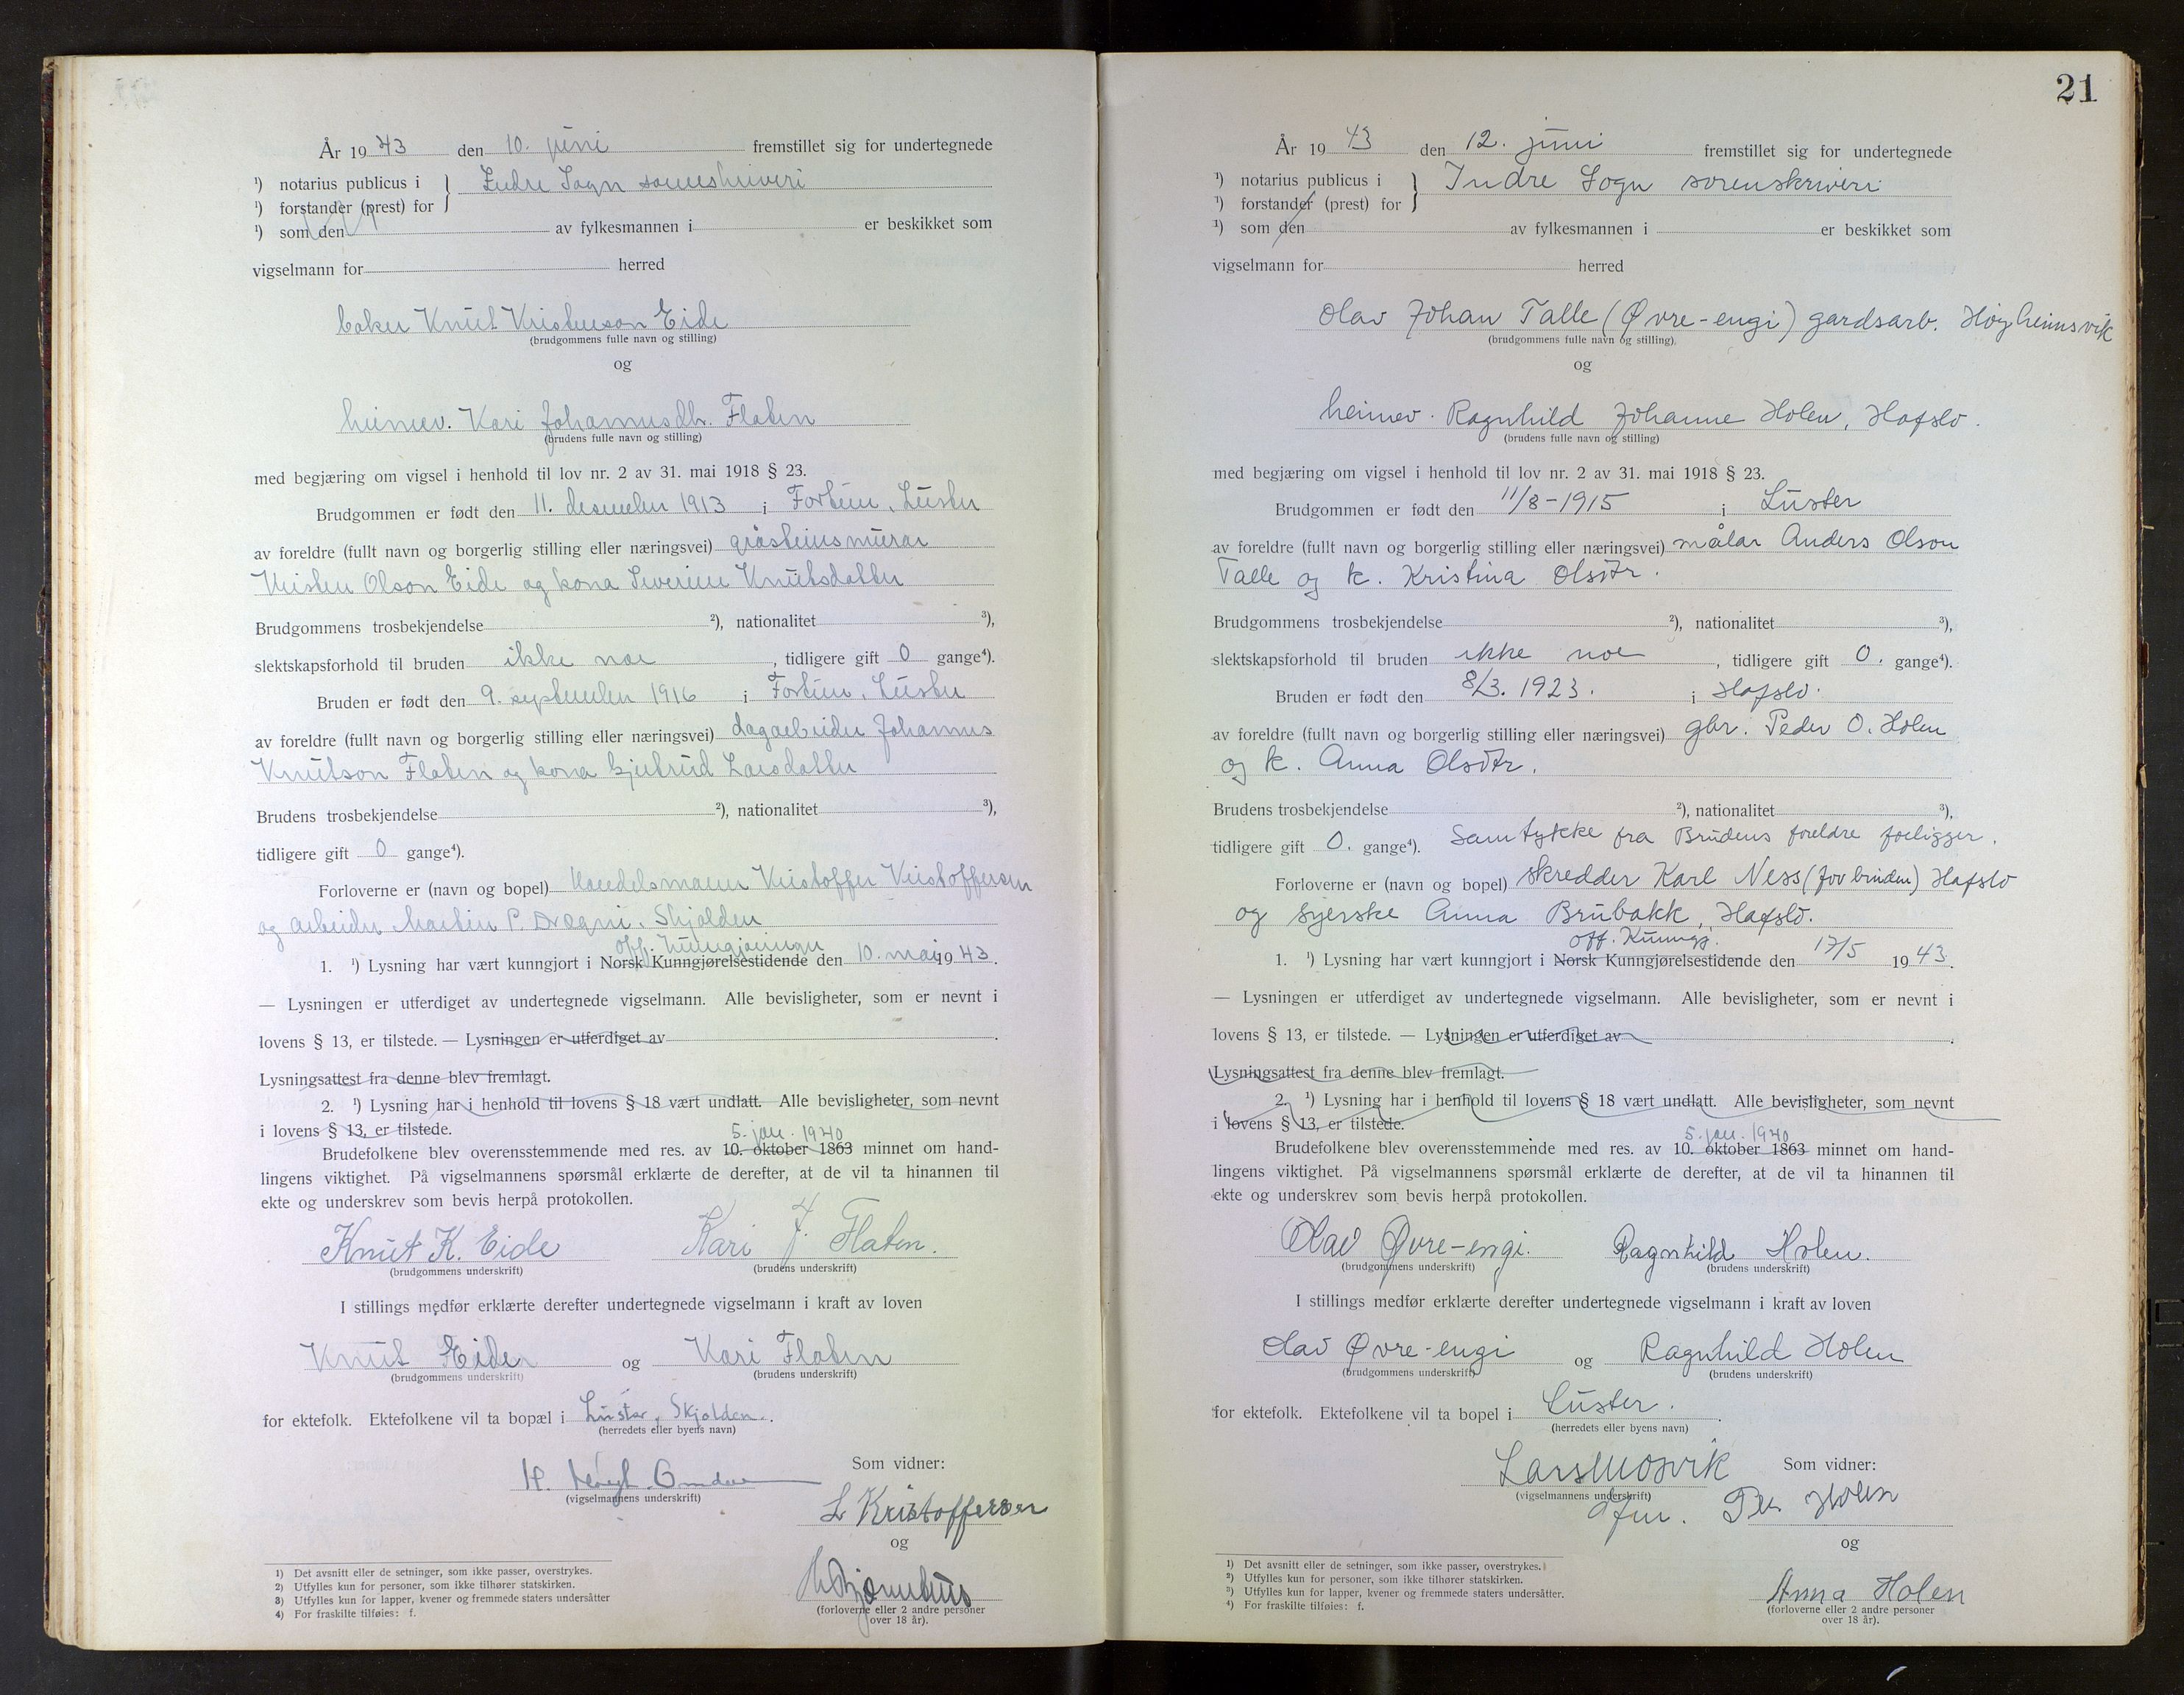 År 1943 den 10. juni fremstillet sig for undertegnede
¹) notarius publicus i } Indre Sogn sorenskriveri
¹) forstander (prest) for
¹) som den av fylkesmannen i er beskikket som
vigselmann for herred
baker Knut Kristenson Eide
(brudgommens fulle navn og stilling)
og
heimev. Kari Johannesdtr. Flaten
(brudens fulle navn og stilling)
med begjæring om vigsel i henhold til lov nr. 2 av 31. mai 1918 § 23.
Brudgommen er født den 11. desember 1913 i Fortun, Luster
av foreldre (fullt navn og borgerlig stilling eller næringsvei) gråsteinsmurar
Kristen Olson Eide og kona Severine Knutsdatter
Brudgommens trosbekjendelse ²), nationalitet ³),
slektskapsforhold til bruden ikke noe, tidligere gift 0 gange⁴).
Bruden er født den 9. september 1916 i Fortun, Luster
av foreldre (fullt navn og borgerlig stilling eller næringsvei) dagarbeider Johannes
Knutson Flaten og kona Gjertrud Larsdatter
Brudens trosbekjendelse ²), nationalitet ³),
tidligere gift 0 gange⁴).
Forloverne er (navn og bopel) Handelsmann Kristoffer Kristoffersen
og arbeider Martin P. Drægni, Skjolden
off. kunngjøringer
1. ¹) Lysning har vært kunngjort i Norsk Kunngjørelsestidende den 10. mai 1943.
— Lysningen er utferdiget av undertegnede vigselmann. Alle bevisligheter, som er nevnt i
lovens § 13, er tilstede. — Lysningen er utferdiget av
Lysningsattest fra denne blev fremlagt.
2. ¹) Lysning har i henhold til lovens § 18 vært undlatt. Alle bevisligheter, som nevnt
i lovens § 13, er tilstede.
5. jan. 1940
Brudefolkene blev overensstemmende med res. av 10. oktober 1863 minnet om hand-
lingens viktighet. På vigselmannens spørsmål erklærte de derefter, at de vil ta hinannen til
ekte og underskrev som bevis herpå protokollen.
Knut K. Eide Kari J. Flaten.
(brudgommens underskrift) (brudens underskrift)
I stillings medfør erklærte derefter undertegnede vigselmann i kraft av loven
Knut Eide og Kari Flaten
(brudgommens underskrift) (brudens underskrift)
for ektefolk. Ektefolkene vil ta bopæl i Luster, Skjolden.
(herredets eller byens navn)
Som vidner:
(vigselmannens underskrift)
L Kristoffersen
og
(forloverne eller 2 andre personer
over 18 år).
1) Det avsnitt eller de setninger, som ikke passer, overstrykes.
2) Utfylles kun for personer, som ikke tilhører statskirken.
3) Utfylles kun for lapper, kvener og fremmede staters undersåtter
4) For fraskilte tilføies: f.
21
År 1943 den 12. juni fremstillet sig for undertegnede
¹) notarius publicus i } Indre Sogn sorenskriveri
¹) forstander (prest) for
¹) som den av fylkesmannen i er beskikket som
vigselmann for herred
Olav Johan Talle (Øvre-engi) gardsarb. Høyheimsvik
(brudgommens fulle navn og stilling)
og
heimev. Ragnhild Johanne Holen, Hafslo.
(brudens fulle navn og stilling)
med begjæring om vigsel i henhold til lov nr. 2 av 31. mai 1918 § 23.
Brudgommen er født den 11/8-1915 i Luster
av foreldre (fullt navn og borgerlig stilling eller næringsvei) målar Anders Olson
Talle og k. Kristina Olsdtr.
Brudgommens trosbekjendelse ²), nationalitet ³),
slektskapsforhold til bruden ikke noe, tidligere gift 0. gange⁴).
Bruden er født den 8/3. 1923. i Hafslo.
av foreldre (fullt navn og borgerlig stilling eller næringsvei) gbr. Peder O. Holen
og k. Anna Olsdtr.
Brudens trosbekjendelse ²), nationalitet ³),
tidligere gift 0. gange⁴). Samtykke fra Brudens foreldre foeligger.
Forloverne er (navn og bopel) skredder Karl Ness (for bruden) Hafslo
og syerske Anna Brubakk, Hafslo.
off. Kunngj.
1. ¹) Lysning har vært kunngjort i Norsk Kunngjørelsestidende den 17/5 1943.
— Lysningen er utferdiget av undertegnede vigselmann. Alle bevisligheter, som er nevnt i
lovens § 13, er tilstede. — Lysningen er utferdiget av
Lysningsattest fra denne blev fremlagt.
2. ¹) Lysning har i henhold til lovens § 18 vært undlatt. Alle bevisligheter, som nevnt
i lovens § 13, er tilstede.
5. jan. 1940
Brudefolkene blev overensstemmende med res. av 10. oktober 1863 minnet om hand-
lingens viktighet. På vigselmannens spørsmål erklærte de derefter, at de vil ta hinannen til
ekte og underskrev som bevis herpå protokollen.
Olav Øvre-engi. Ragnhild Holen.
(brudgommens underskrift) (brudens underskrift)
I stillings medfør erklærte derefter undertegnede vigselmann i kraft av loven
Olav Øvre-engi og Ragnhild Holen
(brudgommens underskrift) (brudens underskrift)
for ektefolk. Ektefolkene vil ta bopel i Luster.
(herredets eller byens navn)
Lars Mosvik Som vidner:
(vigselmannens underskrift)
Per Holen
og
Anna Holen
(forloverne eller 2 andre personer
over 18 år).
1) Det avsnitt eller de setninger, som ikke passer, overstrykes.
2) Utfylles kun for personer, som ikke tilhører statskirken.
3) Utfylles kun for lapper, kvener og fremmede staters undersåtter.
4) For fraskilte tilføies: f.